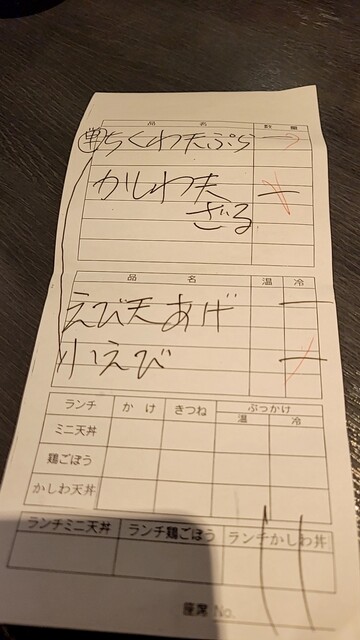 品 名 数 量
単 ちくわ天ぷら 一
かしわ天 一
ざる
品 名 温 冷
えび天あげ 一
小えび 一
ランチ かけ きつね ぶっかけ
温 冷
ミニ天丼
鶏ごぼう
かしわ天丼
ランチミニ天丼 ランチ鶏ごぼう ランチかしわ丼
座席 No.